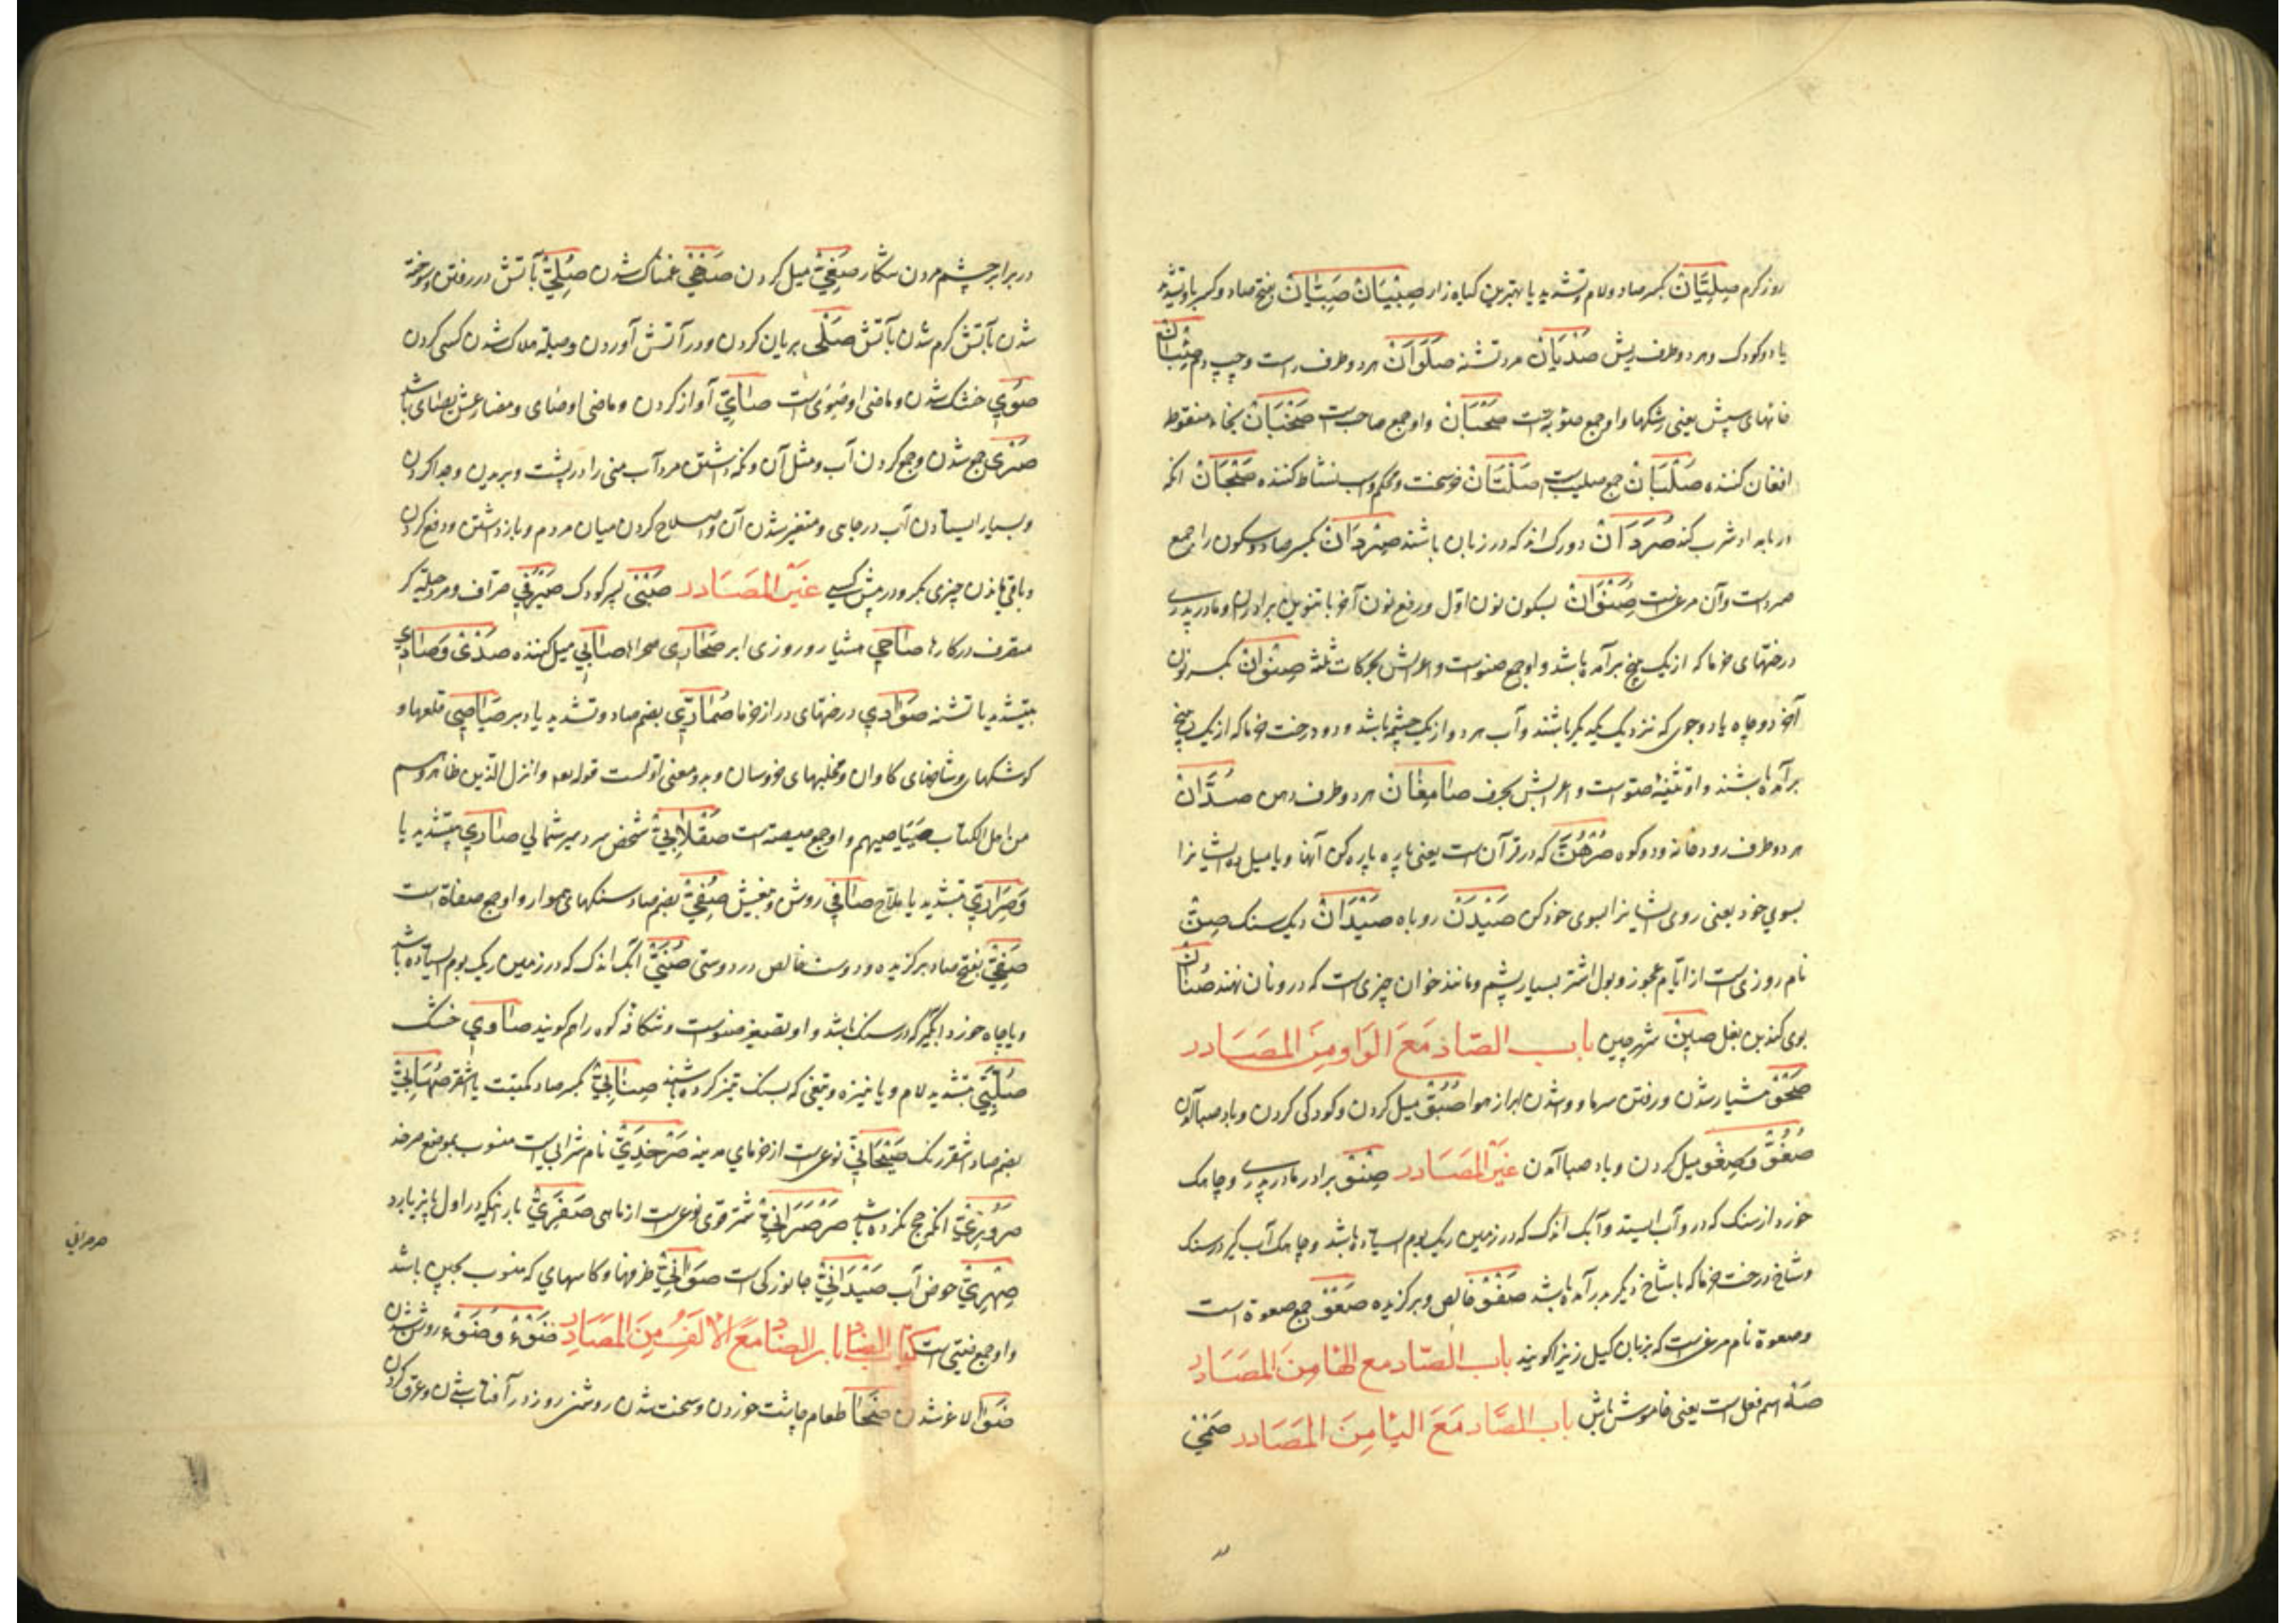 روز کرم صِلِیَّانْ بکسر صاد و لام و تشدید یا بهترین کیاه زار صِبْیَانْ صَبِیَّانْ بفتح صاد و کسر با و تشدید
یا دو کودک و هر دو طرف ریش صَدْیَانْ مرد تشنه صَلَوَانْ هر دو طرف راست و چپ دم صِئْبَانْ
خانهای سپش یعنی رشکها و او جمع صئوابه است صَحْبَانْ و او جمع صاحب است صَخْبَانْ بخاء منقوط
افغان کننده صُلْبَانْ جمع صلیب است صَلَتَانْ خر سخت و محکم و اسب نشاط کننده صَبْحَانْ آنکه
در نابه او شرب کند صُرَدَانْ دو رک اند که در زبان باشند صِرْدَانْ بکسر صاد و سکون را جمع
صرد است و آن مرغیست صِنْوَانْ بسکون نون اول و رفع نون آخر با تنوین برادران و مادر پدری
درختهای خرما که از یک بیخ برآمده باشد و او جمع صنو است و اعرابش بحرکات ثلثه صِنْوَانْ بکسر نون
آخر دو چاه یا دو جوی که نزدیک یکدیگر باشند و آب هر دو از یک چشمه باشد و دو درخت خرما که از یک بیخ
برآمده باشند و او تثنیه صنو است و اعرابش بحرف صَامِغَانْ هر دو طرف دهن صُدَّانْ
هر دو طرف رودخانه و دو کوه صُرْهُنَّ که در قرآن است یعنی پاره پاره کن آنها و یا میل ده ایشانرا
بسوی خود یعنی روی ایشانرا بسوی خود کن صَیْدَنْ روباه صَیْدَانْ دیک سنک صِنّ
نام روزی است از ایام عجوز و بول اشتر بسیار پشم و مانند خوان چیزی است که در و نان نهند صُنَانْ
بوی کندیدن بغل صِینْ شهر چین باب الصّاد مَعَ الوَاو مِنَ المَصَادر
صَحْو هشیار شدن و رفتن سرما و وا شدن ابر از هوا صُبُوّ میل کردن و کودکی کردن و باد صبا آمدن
صُغُوّ وَصِغْو میل کردن و باد صبا آمدن غَیْرُ المَصَادر صِنْو برادر مادر پدری و چاهک
خورد از سنک که در و آب ایستد و آبک اندک که در زمین ریک بوم ایستاده باشد و چاهک آب کیر در سنک
و شاخ درخت خرما که با شاخ دیکر برآمده باشد صَفْو خالص و برکزیده صَعْو جمع صعوة است
و صعوة نام مرغی است که بزبان کیل زیزا کویند باب الصّاد مع الهَا مِنَ المَصَادر
صَهْ اسم فعل است یعنی خاموش باش باب الصَّاد مَعَ الیَا مِنَ المَصَادر صَمْی
در برابر چشم مردن شکار صَغْیْ میل کردن غمناک شدن صُلِیّ بآتش در رفتن و سوخته
شدن بآتش کرم شدن بآتش صَلْی بریان کردن و در آتش آوردن و حیله هلاک شدن کسی کردن
صُوِیّ خشک شدن و ماضی او صَوَی است صَاْی آواز کردن و ماضی او صای و مضارعش یصای باشد
صَرْی جمع شدن و جمع کردن آب و مثل آن و نکه داشتن مرد آب منی را در پشت و بریدن و جدا کردن
و بسیار ایستادن آب در جایی و متغیر شدن آن و اصلاح کردن میان مردم و باز داشتن و دفع کردن
و باقی ماندن چیزی بکرو در پیش کسی غَیْرُ المَصَادر صَبِی پسر کودک صَیْرَفِی صراف و مرد حیله کر
متصرف در کارها صَاحِی هشیار و روز بی ابر صَحَارِی صحراها صَابِی میل کننده صَدْی وَصَادِی
بتشدید یا تشنه صَوَادِی درختهای دراز خرما صُمَادِی بضم صاد و تشدید یا دبر صَیَاصِی قلعها و
کوشکها و شاخهای کاوان و مخلبهای خروسان و بدو معنی اولست قوله تعه و انزل الذین ظاهروهم
من اهل الکتاب مِن صَیَاصیهم و او جمع صیصه است صَقْلَابِیّ شخص سرد سیر شمالی صَارِی بتشدید یا
وَصَرَارِی بتشدید یا ملاح صَافِی روشن و بیغش صُفِیّ بضم صاد سنکهای هموار و او جمع صفاة است
صَفِیّ بفتح صاد برکزیده و دوست خالص در دوستی صُنَیّ آبک اندک که در زمین ریک بوم ایستاده باشد
و یا چاه خورد آبکیر که در سنک باشد و او تصغیر صنو است و شکاف کوه را هم کویند صَاوِی خشک
صُلَّبِیّ بتشدید لام و یا نیزه و تیغی که بسنک تیز کرده باشند صِنَابِیّ بکسر صاد کمیت یا اشقر صُهَابِیّ
بضم صاد اشقر رنک صَیْحَانِیّ نوعی است از خرمای مدینه صَرْخَدِیّ نام شرابی است منسوب بموضع صرخد
آنکه حج نکرده باشد صَرْصَرَانِیّ شتر قوی نوعی است از ماهی صَفَرِیّ بارانیکه در اول پاییز بارد
صِهْرِیّ حوض آب صَیْدَانِیّ جانورکی است صَوَانِیّ ظرفها و کاسهای که منسوب بچین باشد
و او جمع صینی است کتاب الضّاد باب الضاد مَعَ الاَلِف مِنَ المَصَادِر ضَوْءْ وَ ضُوْءْ روشن شدن
ضَوَا لاغر شدن ضَحَا طعام چاشت خوردن و سخت شدن روشنی روز در آفتاب شدن و عرق کردن
صرصرانی